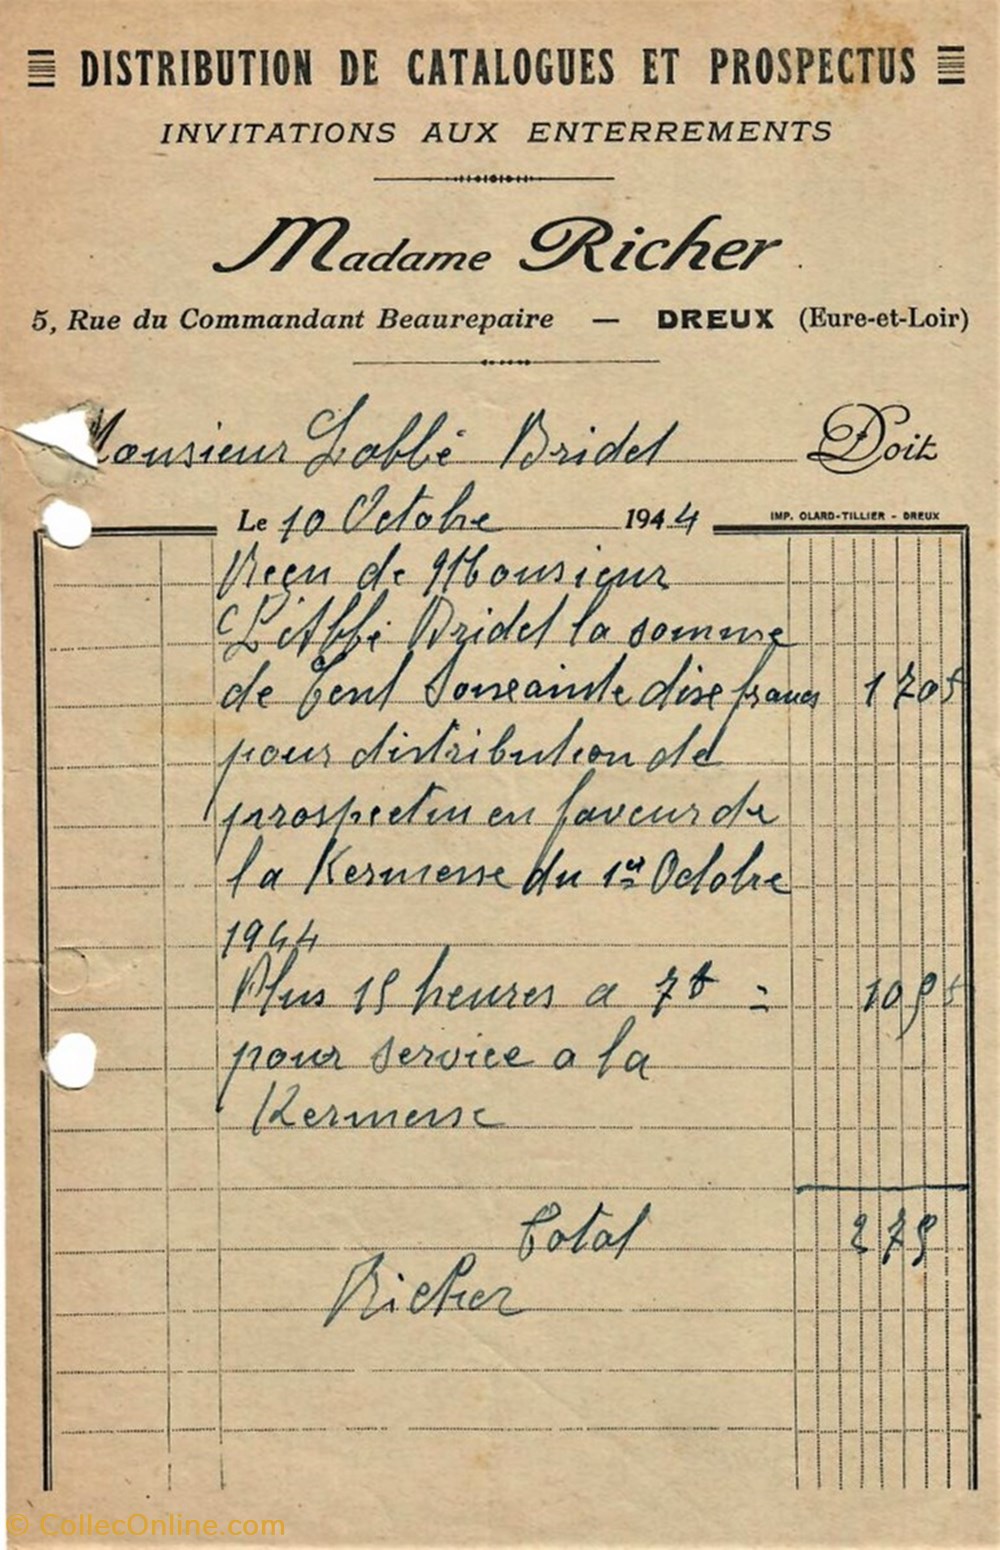 DISTRIBUTION DE CATALOGUES ET PROSPECTUS
INVITATIONS AUX ENTERREMENTS
Madame Richer
5, Rue du Commandant Beaurepaire — DREUX (Eure-et-Loir)
Monsieur Labbé Bridel Doit
Le 10 Octobre 1944 IMP. OLARD-TILLIER - DREUX
Reçu de Monsieur
L'Abbé Bridel la somme
de Cent Soixainte dixe francs 170 f
pour distribution de
prospectus en faveur de
la Kermesse du 1er Octobre
1944
Plus 15 heures a 7f = 105 f
pour service a la
Kermesse
Total 275
Richer
© CollecOnline.com